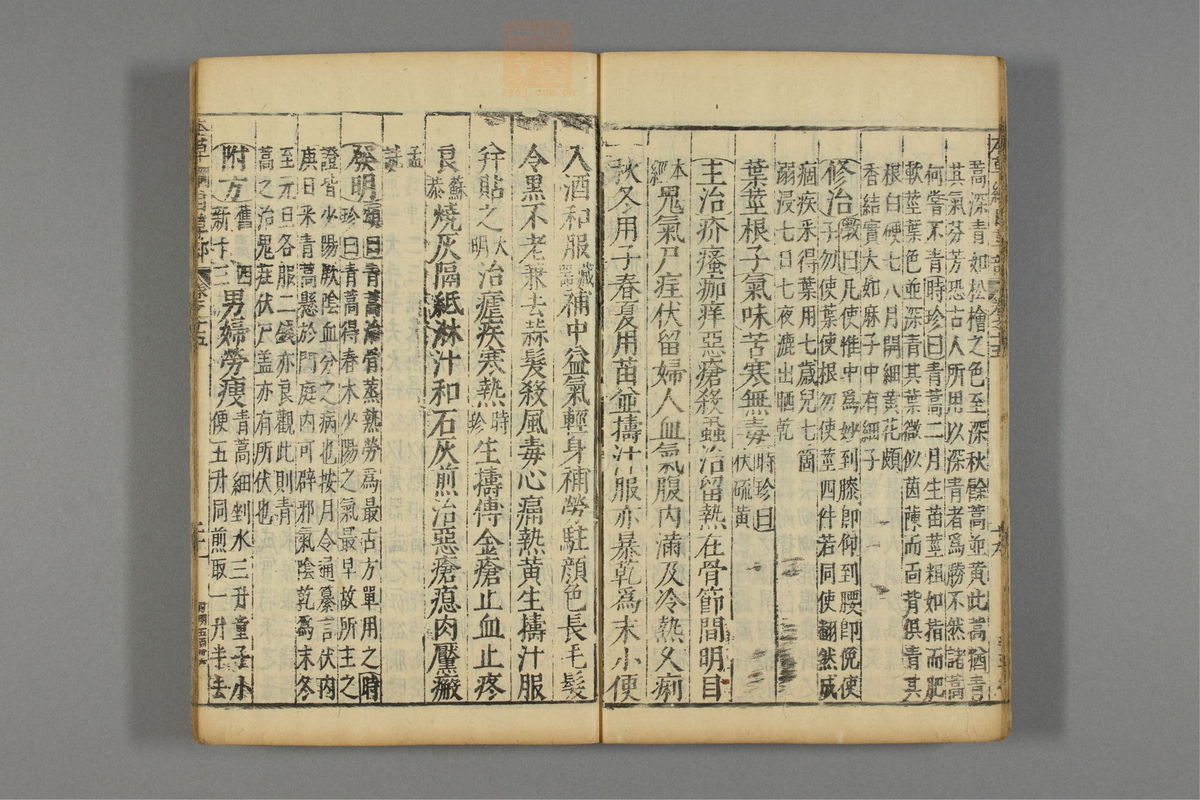 蒿深青如松檜之色至深秋餘蒿並黃此蒿猶青
其氣芬芳恐古人所用以深青者爲勝不然諸蒿
何嘗不青時珍曰青蒿二月生苗莖粗如指而肥
軟莖葉色並深青其葉微似茵蔯而面背俱青其
根白硬七八月開細黃花頗
香結實大如麻子中有細子
修治斆曰凡使惟中爲妙到膝即仰到腰即俛使
子勿使葉使根勿使莖四件若同使翻然成
痼疾采得葉用七歲兒七箇
溺浸七日七夜漉出晒乾
葉莖根子氣味苦寒無毒時珍曰
伏硫黃
主治疥瘙痂痒惡瘡殺蟲治留熱在骨節間明目
本經
鬼氣尸疰伏留婦人血氣腹內滿及冷熱久痢
秋冬用子春夏用苗並擣汁服亦暴乾爲末小便
入酒和服藏器
補中益氣輕身補勞駐顏色長毛髮
令黑不老兼去蒜髮殺風毒心痛熱黃生擣汁服
并貼之大明
治瘧疾寒熱時珍
生擣傅金瘡止血止疼
良蘇恭
燒灰隔紙淋汁和石灰煎治惡瘡瘜肉黶瘢
孟詵
發明頌曰青蒿治骨蒸熱勞爲最古方單用之時
珍曰青蒿得春木少陽之氣最早故所主之
證皆少陽厥陰血分之病也按月令通纂言伏內
庚日采青蒿懸於門庭內可辟邪氣陰乾爲末冬
至元旦各服二錢亦良觀此則青
蒿之治鬼疰伏尸蓋亦有所伏也
附方舊四
新十三
男婦勞瘦青蒿細剉水三升童子小
便五升同煎取一升半去